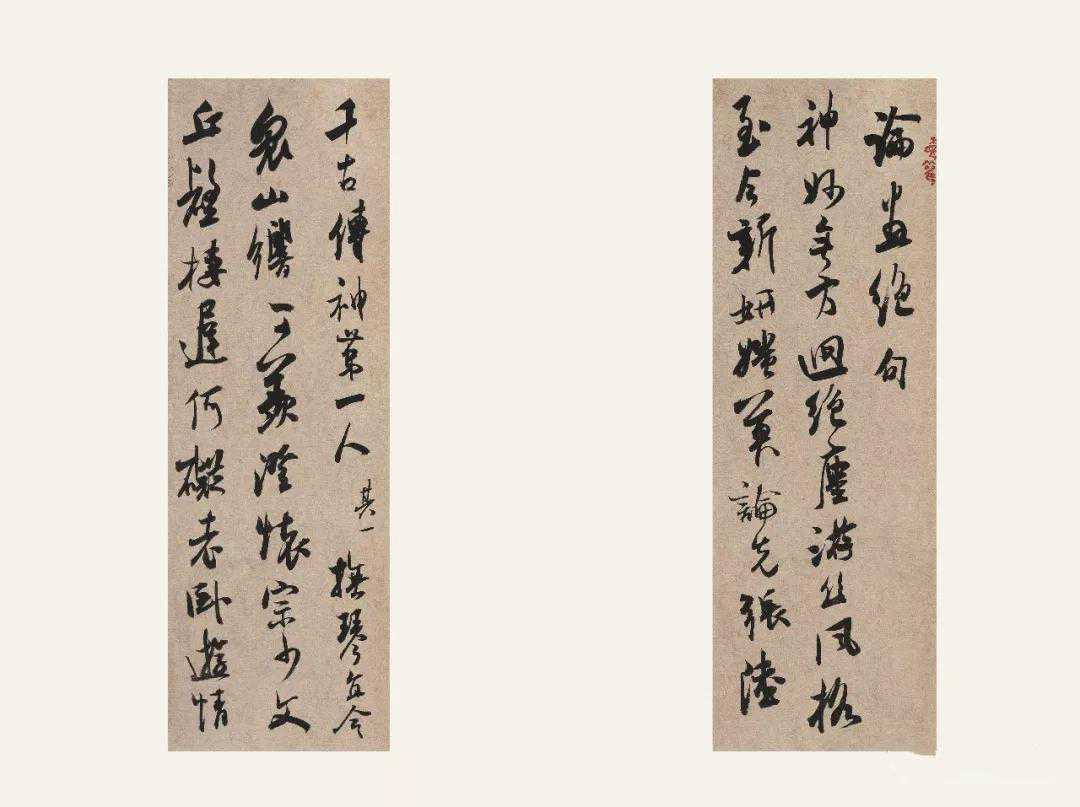 論畫絕句
神妙無方迥絕塵游絲風格
至今新妍媸莫論先張陸
千古傳神第一人 其一 撫琴宜令
眾山響可羨澄懷宗少文
丘壑棲遲何礙老臥遊情